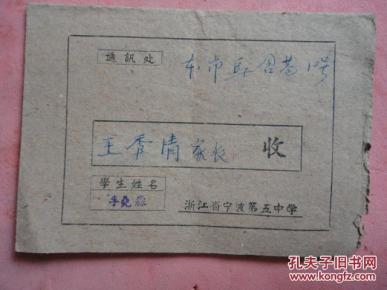 通訊处
本市县学巷1号
王秀清家长 收
學生姓名
浙江省宁波第五中学
孔夫子旧书网